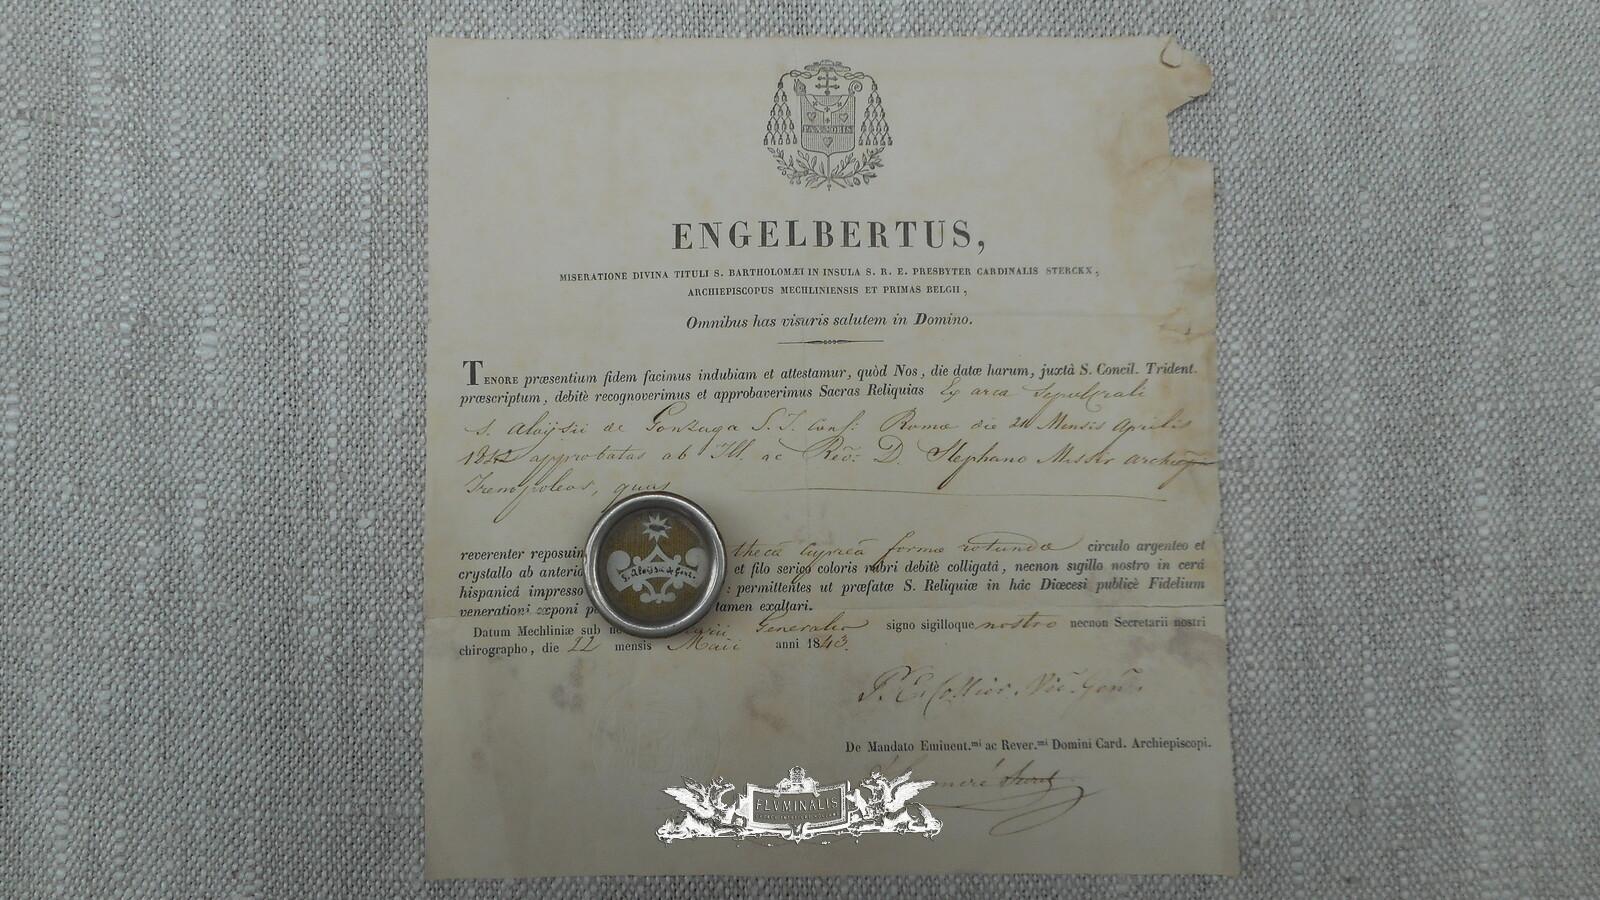 ENGELBERTUS,
MISERATIONE DIVINA TITULI S. BARTHOLOMÆI IN INSULA S. R. E. PRESBYTER CARDINALIS STERCKX,
ARCHIEPISCOPUS MECHLINIENSIS ET PRIMAS BELGII,
Omnibus has visuris salutem in Domino.
TENORE præsentium fidem facimus indubiam et attestamur, quòd Nos, die datæ harum, juxtà S. Concil. Trident.
præscriptum, debitè recognoverimus et approbaverimus Sacras Reliquias Ex arca sepulcrali
S. Aloÿsii de Gonzaga S.J. Conf: Romæ die 21 Mensis Aprilis
1842 approbatas ab Ill. ac Rev: D. Stephano Missir archiep
Irenopoleos, quas
reverenter reposuim thecâ cypreâ formæ rotundæ circulo argenteo et
crystallo ab anterio et filo serico coloris rubri debitè colligatâ, necnon sigillo nostro in cerâ
hispanicâ impresso : permittentes ut præfatæ S. Reliquiæ in hâc Diœcesi publicè Fidelium
venerationi exponi po tamen exaltari.
S. Aloÿsii de Gonz.
Datum Mechliniæ sub Generalis signo sigilloque nostro necnon Secretarii nostri
chirographo, die 22 mensis Maii anni 1843.
Vic. Gen.
De Mandato Eminent.mi ac Rever.mi Domini Card. Archiepiscopi.
FLVMINALIS